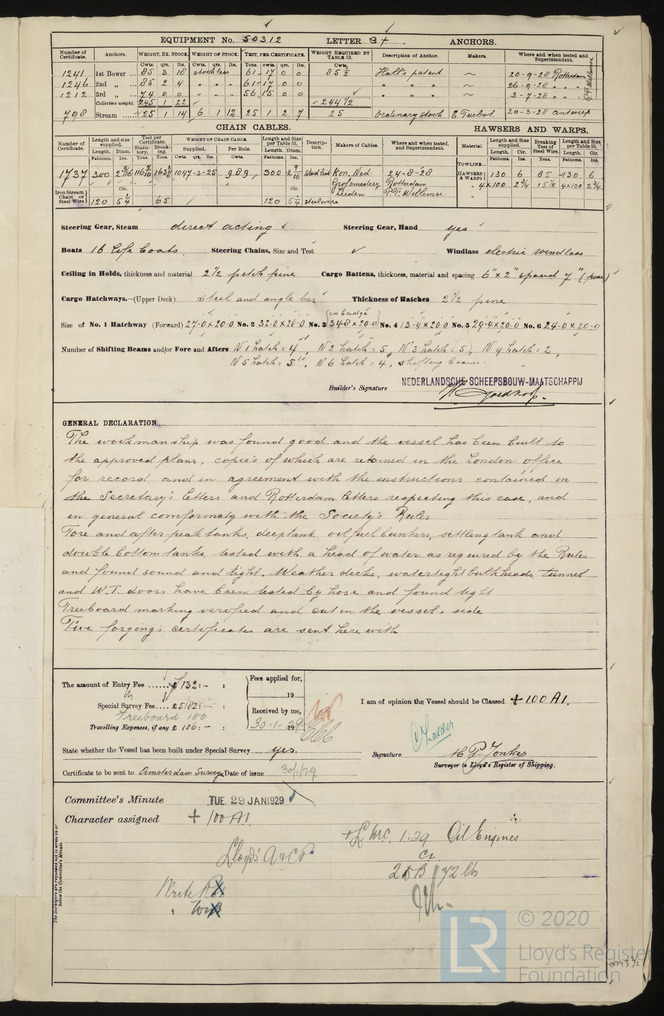 EQUIPMENT No. 50312 LETTER 3+ ANCHORS.
Number of Certificate. Anchors. WEIGHT, EX. STOCK. WEIGHT OF STOCK. TEST, PER CERTIFICATE. WEIGHT REQUIRED BY TABLE 53. Description of Anchor. Makers. Where and when tested and Superintendent.
Cwts. qrs. lbs. Cwts. qrs. lbs. Tons. cwts. qrs. lbs. Cwts.
1241 1st Bower 85 3 18 stockless 61 17 0 0 85½ Hall's patent 20-9-28 Rotterdam
1246 2nd „ 85 2 4 61 17 0 0 26-9-28
1212 3rd „ 74 0 0 56 15 0 0 3-7-28
Collective weight. 245 1 22 244½
798 Stream 25 1 14 6 1 12 25 1 2 7 25 Ordinary stock 20-3-28 Antwerp
CHAIN CABLES. HAWSERS AND WARPS.
Number of Certificate. Length and size supplied. Test per Certificate. WEIGHT OF CHAIN CABLE. Length and size per Table 53. Description. Makers of Cables. Where and when tested, and Superintendent. Material Length and Size supplied. Breaking Test of Steel Wire. Length and Size per Table 53.
Supplied. Per Rule.
1737 300 1047-3-25 989 300 Kon. Ned. 24-8-28 TOWLINE HAWSERS & WARPS 130 6 85 130 6
Grofsmedery Rotterdam 4x100 2¾ 15½ 4x100 2¾
Iron Stream Chain or Steel Wire Leiden
120 5¼ 65 120 5¼ steelwire
Steering Gear, Steam direct acting Steering Gear, Hand yes
Boats 16 Life Boats Steering Chains, Size and Test ✓ Windlass electric windlass
Ceiling in Holds, thickness and material 2½ pitch pine Cargo Battens, thickness, material and spacing 6"x2" spaced 7" (pine)
Cargo Hatchways.—(Upper Deck) Steel and angle bar Thickness of Hatches 2½ pine
Size of No. 1 Hatchway (Forward) 27-0x20-0 No. 2 32-0x20-0 No. 3 (in bridge) 34-8x20-0 No. 4 13-4x20-0 No. 5 29-4x20-0 No. 6 24-0x20-0
Number of Shifting Beams and/or Fore and Afters No 1 hatch = 4, No 2 hatch = 5, No 3 hatch = 5, No 4 hatch = 2,
No 5 hatch = 5, No 6 hatch = 4, shifting beams
Builder's Signature NEDERLANDSCHE SCHEEPSBOUW-MAATSCHAPPIJ
GENERAL DECLARATION.
The workmanship was found good and the vessel has been built to
the approved plans, copies of which are retained in the London office
for record and in agreement with the instructions contained in
the Secretary's letters and Rotterdam letters respecting this case, and
in general comformaty with the Society's Rules
Fore and after peak tanks, deeptank oil fuel bunkers, settling tank and
double bottom tanks, tested with a head of water as required by the Rules
and found sound and tight. Weather decks, watertight bulkheads tunnel
and W.T. doors have been tested by hose and found tight
Freeboard marking verified and cut in the vessel's side
Five forging's certificates are sent here with
The amount of Entry Fee £ 132:–:
Special Survey Fee £ 5182:–:
Freeboard 180
Travelling Expenses, if any £ 106:–:
Fees applied for,
19
Received by me,
30-1-1929
I am of opinion the Vessel should be Classed + 100 A1.
State whether the Vessel has been built under Special Survey yes.
Signature H. P. Jonkes
Surveyor to Lloyd's Register of Shipping.
Certificate to be sent to Amsterdam Survey Date of issue 30/1/29
Committee's Minute TUE. 29 JAN 1929
Character assigned + 100 A1
+ LMC. 1.29 Oil Engines
Lloyd's A & CP
CL
2 DB 172 lbs
Write
The Surveyors are requested not to write on or below the Committee's Minute.
LR © 2020
Lloyd's Register
Foundation